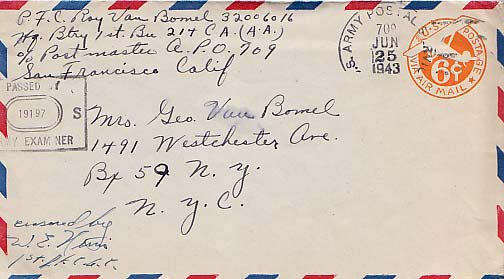 P.F.C. Roy Van Bomel 32006016
Hq. Btry 1st. Bn 214 C A. (A.A.)
c/o Postmaster A.P.O. 709
San Francisco Calif
U.S. ARMY POSTAL
709
JUN
25
1943
U.S. POSTAGE
6¢
VIA AIR MAIL
PASSED
19197
S
ARMY EXAMINER
Mrs. Geo. Van Bomel
1491 Westchester Ave.
Bx 59 N.Y.
N.Y.C.
censored by
W. E.
1st Lt. C.A.C.